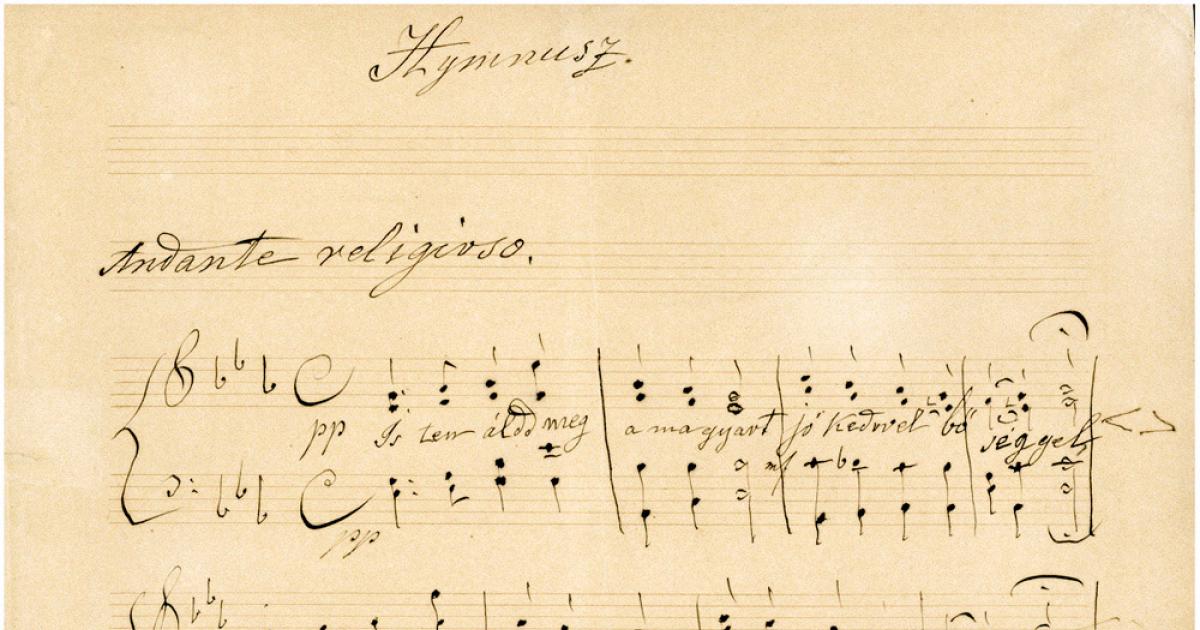 Hymnusz.
Andante religioso.
pp Is ten áldd meg a magyart jó kedvvel bő séggel
mf
pp